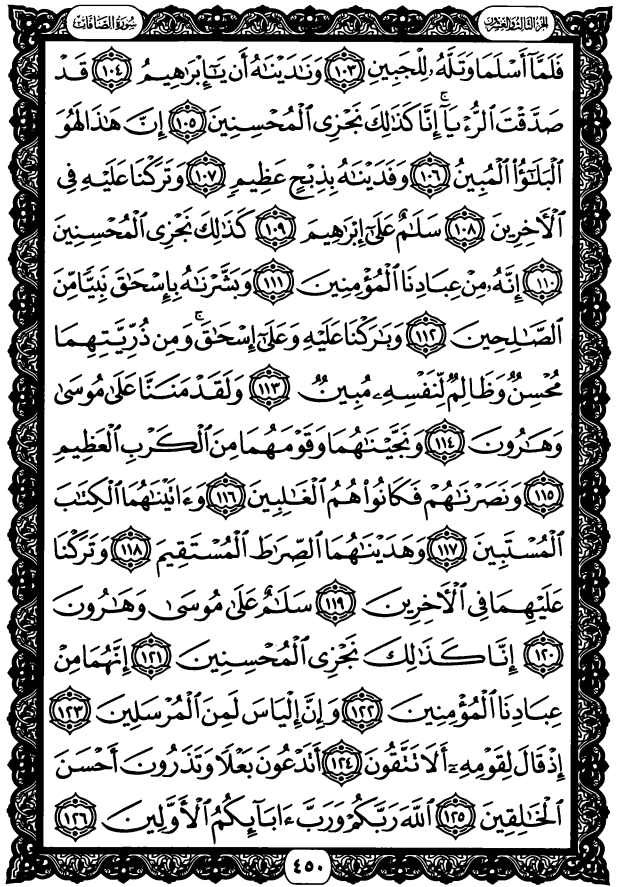 الجزء الثالث والعشرون
سورة الصافات
فَلَمَّآ أَسْلَمَا وَتَلَّهُۥ لِلْجَبِينِ ١٠٣ وَنَٰدَيْنَٰهُ أَن يَٰٓإِبْرَٰهِيمُ ١٠٤ قَدْ
صَدَّقْتَ ٱلرُّءْيَآۚ إِنَّا كَذَٰلِكَ نَجْزِى ٱلْمُحْسِنِينَ ١٠٥ إِنَّ هَٰذَا لَهُوَ
ٱلْبَلَٰٓؤُا۟ ٱلْمُبِينُ ١٠٦ وَفَدَيْنَٰهُ بِذِبْحٍ عَظِيمٍ ١٠٧ وَتَرَكْنَا عَلَيْهِ فِى
ٱلْءَاخِرِينَ ١٠٨ سَلَٰمٌ عَلَىٰٓ إِبْرَٰهِيمَ ١٠٩ كَذَٰلِكَ نَجْزِى ٱلْمُحْسِنِينَ
١١٠ إِنَّهُۥ مِنْ عِبَادِنَا ٱلْمُؤْمِنِينَ ١١١ وَبَشَّرْنَٰهُ بِإِسْحَٰقَ نَبِيًّا مِّنَ
ٱلصَّٰلِحِينَ ١١٢ وَبَٰرَكْنَا عَلَيْهِ وَعَلَىٰٓ إِسْحَٰقَۚ وَمِن ذُرِّيَّتِهِمَا
مُحْسِنٌ وَظَالِمٌ لِّنَفْسِهِۦ مُبِينٌ ١١٣ وَلَقَدْ مَنَنَّا عَلَىٰ مُوسَىٰ
وَهَٰرُونَ ١١٤ وَنَجَّيْنَٰهُمَا وَقَوْمَهُمَا مِنَ ٱلْكَرْبِ ٱلْعَظِيمِ
١١٥ وَنَصَرْنَٰهُمْ فَكَانُوا۟ هُمُ ٱلْغَٰلِبِينَ ١١٦ وَءَاتَيْنَٰهُمَا ٱلْكِتَٰبَ
ٱلْمُسْتَبِينَ ١١٧ وَهَدَيْنَٰهُمَا ٱلصِّرَٰطَ ٱلْمُسْتَقِيمَ ١١٨ وَتَرَكْنَا
عَلَيْهِمَا فِى ٱلْءَاخِرِينَ ١١٩ سَلَٰمٌ عَلَىٰ مُوسَىٰ وَهَٰرُونَ
١٢٠ إِنَّا كَذَٰلِكَ نَجْزِى ٱلْمُحْسِنِينَ ١٢١ إِنَّهُمَا مِنْ
عِبَادِنَا ٱلْمُؤْمِنِينَ ١٢٢ وَإِنَّ إِلْيَاسَ لَمِنَ ٱلْمُرْسَلِينَ ١٢٣
إِذْ قَالَ لِقَوْمِهِۦٓ أَلَا تَتَّقُونَ ١٢٤ أَتَدْعُونَ بَعْلًا وَتَذَرُونَ أَحْسَنَ
ٱلْخَٰلِقِينَ ١٢٥ ٱللَّهَ رَبَّكُمْ وَرَبَّ ءَابَآئِكُمُ ٱلْأَوَّلِينَ ١٢٦
٤٥٠